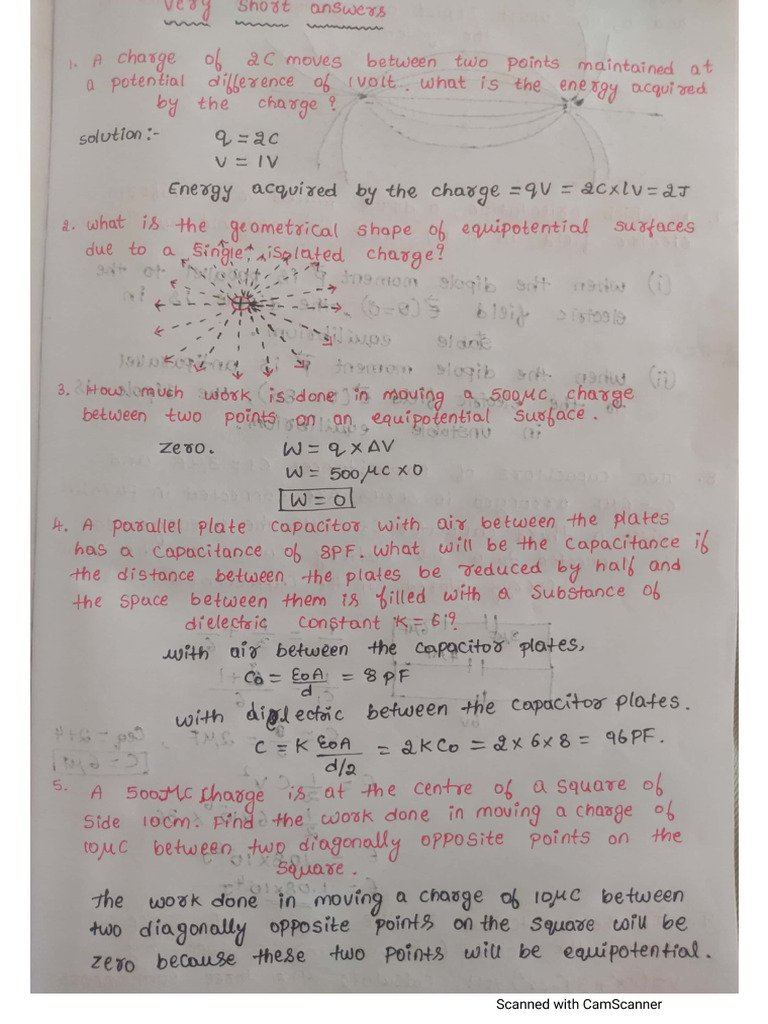 Very short answers
1. A charge of 2C moves between two points maintained at
a potential difference of 1volt. what is the energy acquired
by the charge?
solution:- q = 2C
V = 1V
Energy acquired by the charge = qV = 2C×1V = 2J
2. what is the geometrical shape of equipotential surfaces
due to a single, isolated charge?
3. How much work is done in moving a 500μC charge
between two points on an equipotential surface.
zero. W = q × ΔV
W = 500μC × 0
W = 0
4. A parallel plate capacitor with air between the plates
has a capacitance of 8PF. what will be the capacitance if
the distance between the plates be reduced by half and
the space between them is filled with a substance of
dielectric constant K = 6?
with air between the capacitor plates,
C0 = ε0A/d = 8pF
with dielectric between the capacitor plates.
C = K ε0A/d/2 = 2KC0 = 2×6×8 = 96PF.
5. A 500μC charge is at the centre of a square of
side 10cm. Find the work done in moving a charge of
10μC between two diagonally opposite points on the
square.
The work done in moving a charge of 10μC between
two diagonally opposite points on the square will be
zero because these two points will be equipotential.
Scanned with CamScanner